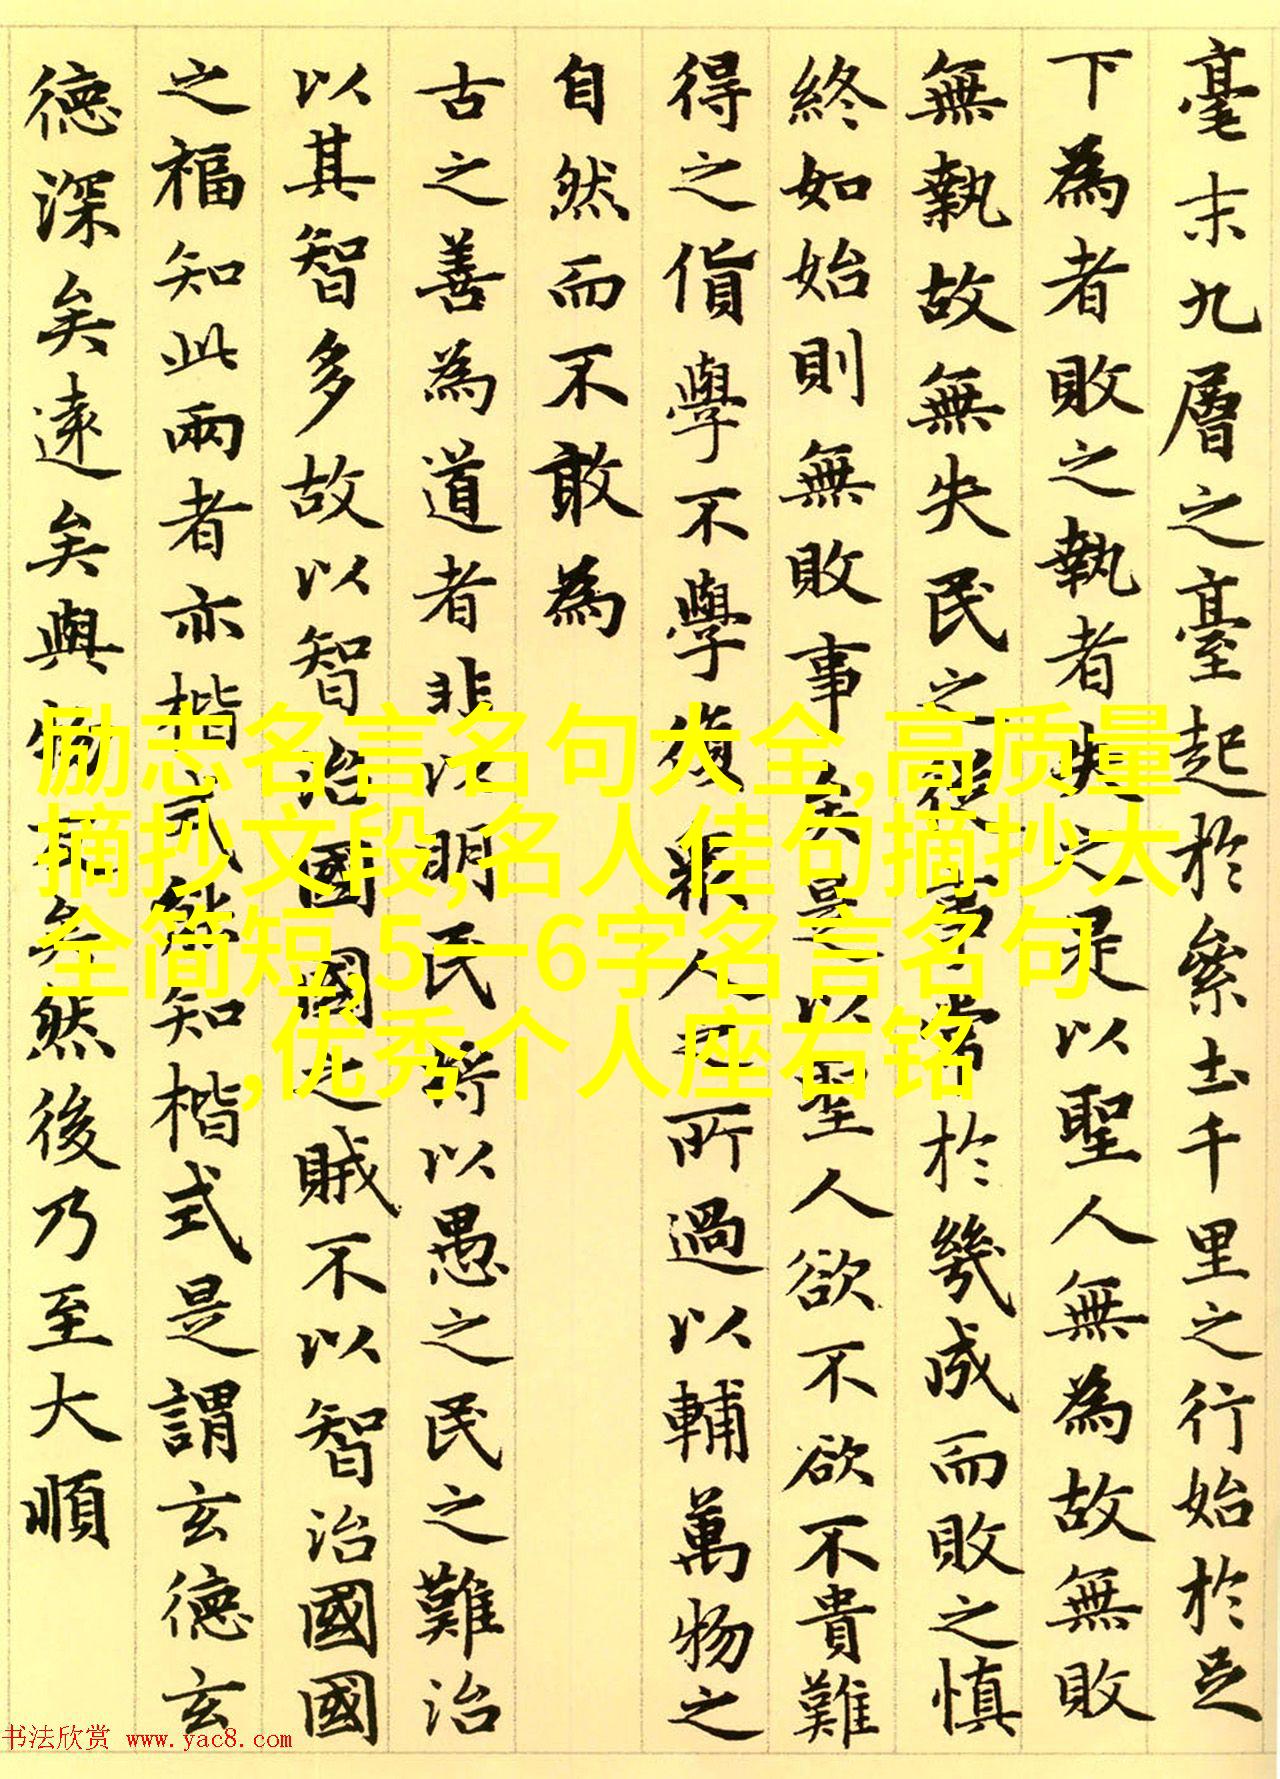 毫末九層之臺起於絫土千里之行始於足
下為者敗之執者失之是以聖人無為故無敗
無執故無失民之從事常於幾成而敗之慎
終如始則無敗事矣是以聖人欲不欲不貴難
得之貨學不學復衆人之所過以輔萬物之
自然而不敢為
古之善為道者非以明民將以愚之民之難治
以其智多故以智治國國之賊不以智治國國
之福知此兩者亦楷式能知楷式是謂玄德玄
德深矣遠矣與物反矣然後乃至大順
励志名言名句大全,高质量
摘抄文段,名人佳句摘抄大
全简短,5一6字名言名句
,优秀个人座右铭
书法欣赏 www.yac8.com